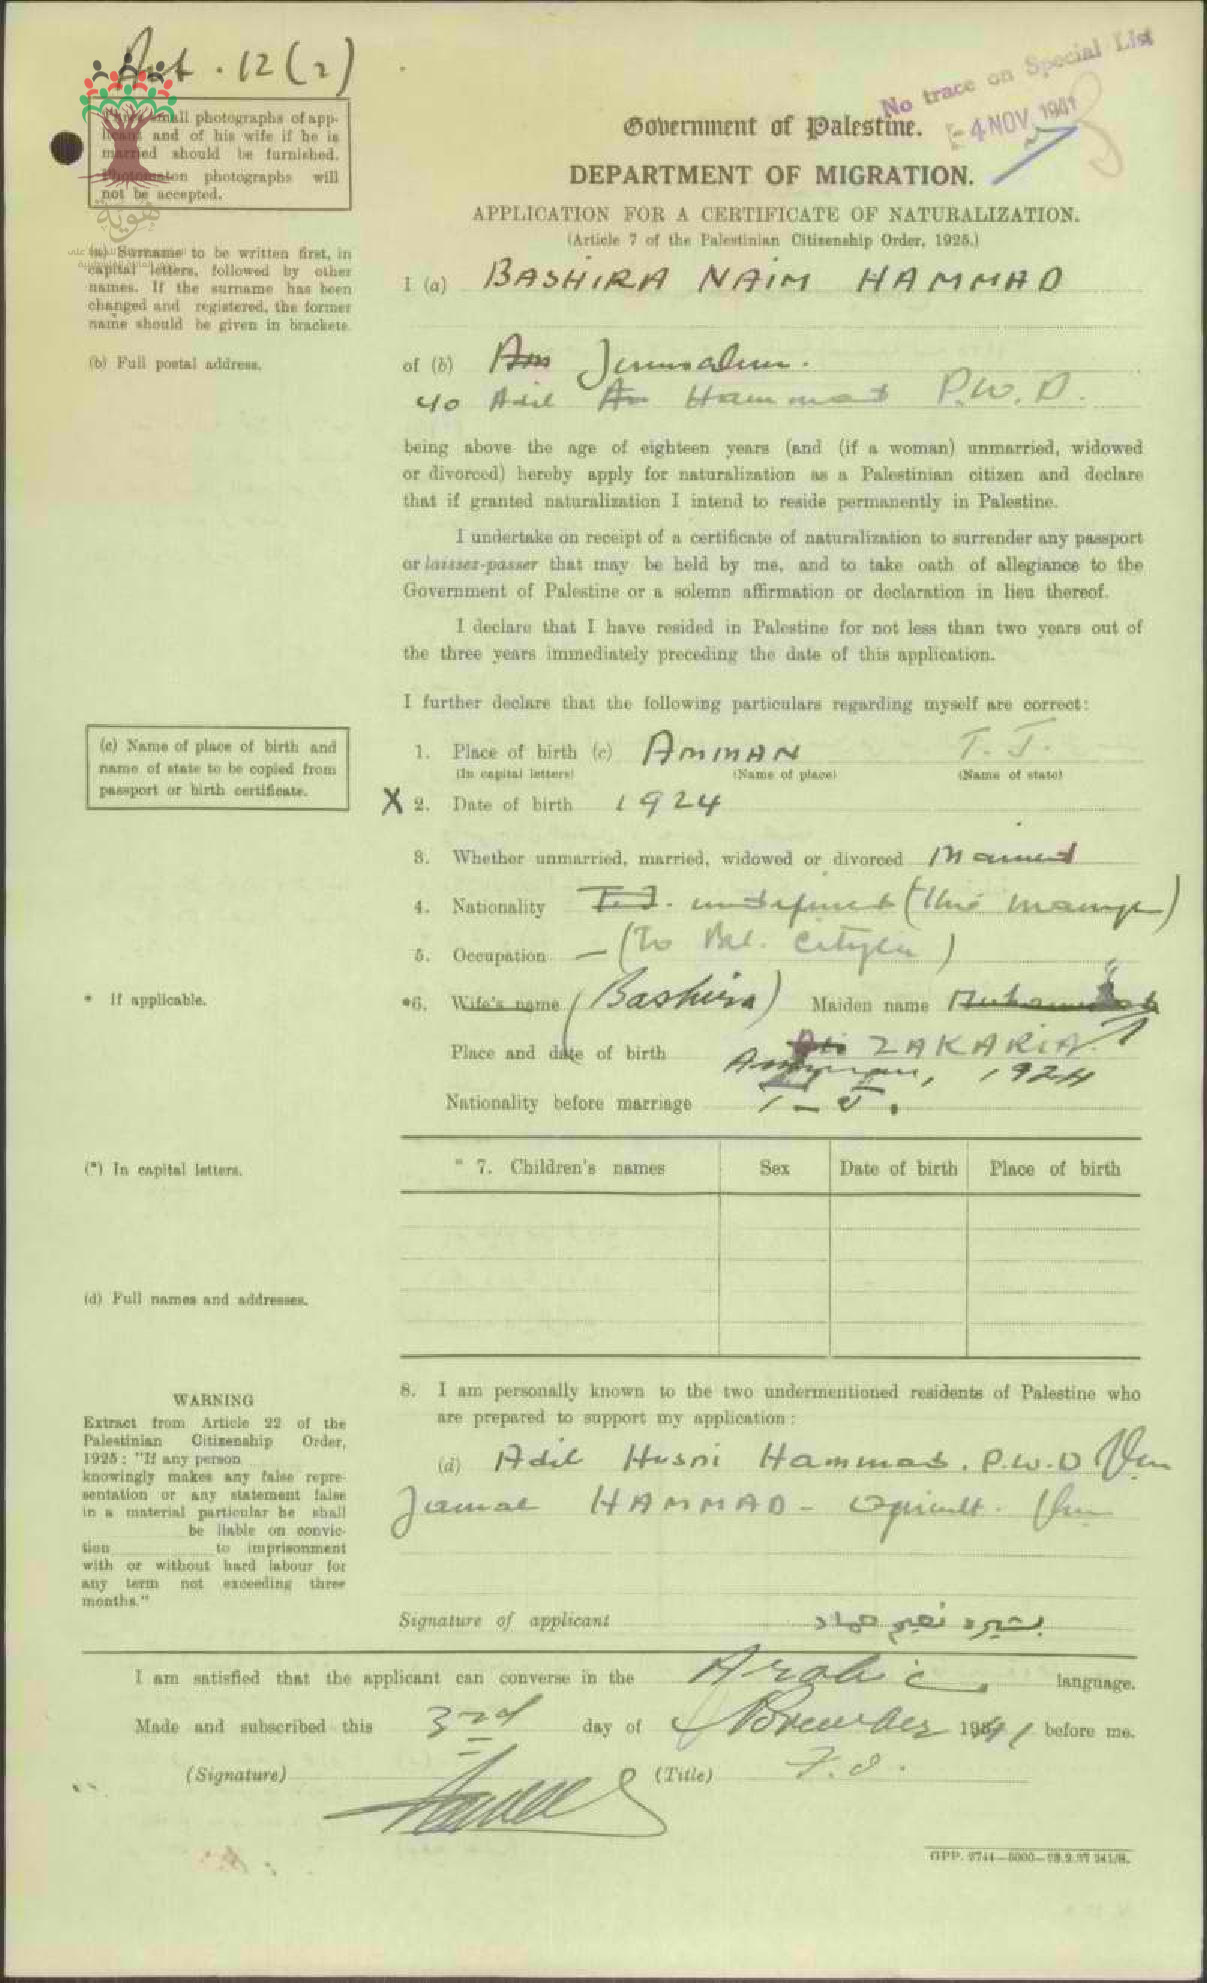 Art. 12(2)
No trace on Special List
4 NOV 1941
Three small photographs of app-
licant and of his wife if he is
married should be furnished.
Photomaton photographs will
not be accepted.
هوية
Government of Palestine.
DEPARTMENT OF MIGRATION.
APPLICATION FOR A CERTIFICATE OF NATURALIZATION.
(Article 7 of the Palestinian Citizenship Order, 1925.)
(a) Surname to be written first, in
capital letters, followed by other
names. If the surname has been
changed and registered, the former
name should be given in brackets.
I (a) BASHIRA NAIM HAMMAD
(b) Full postal address.
of (b) Am Jerusalem.
c/o Adil Hammad P.W.D.
being above the age of eighteen years (and (if a woman) unmarried, widowed
or divorced) hereby apply for naturalization as a Palestinian citizen and declare
that if granted naturalization I intend to reside permanently in Palestine.
I undertake on receipt of a certificate of naturalization to surrender any passport
or laissez-passer that may be held by me, and to take oath of allegiance to the
Government of Palestine or a solemn affirmation or declaration in lieu thereof.
I declare that I have resided in Palestine for not less than two years out of
the three years immediately preceding the date of this application.
I further declare that the following particulars regarding myself are correct:
(c) Name of place of birth and
name of state to be copied from
passport or birth certificate.
1. Place of birth (c) AMMAN T.J.
(In capital letters) (Name of place) (Name of state)
X 2. Date of birth 1924
3. Whether unmarried, married, widowed or divorced Married
4. Nationality T.J. (thro' marriage)
5. Occupation — (to Pal. citizen)
* If applicable.
*6. Wife's name (Bashira) Maiden name
Place and date of birth Ali ZAKARIA
Amman, 1924
Nationality before marriage T-J.
(*) In capital letters.
* 7. Children's names Sex Date of birth Place of birth
(d) Full names and addresses.
8. I am personally known to the two undermentioned residents of Palestine who
are prepared to support my application:
(d) Adil Husni Hammad. P.W.D Jlm
Jamal HAMMAD - Agricult. Jlm
WARNING
Extract from Article 22 of the
Palestinian Citizenship Order,
1925: "If any person
knowingly makes any false repre-
sentation or any statement false
in a material particular he shall
be liable on convic-
tion to imprisonment
with or without hard labour for
any term not exceeding three
months."
Signature of applicant بشيره نعيم حماد
I am satisfied that the applicant can converse in the Arabic language.
Made and subscribed this 3rd day of November 1941 before me.
(Signature) (Title) F.O.
GPP. 2744—5000—23.2.37 241/H.